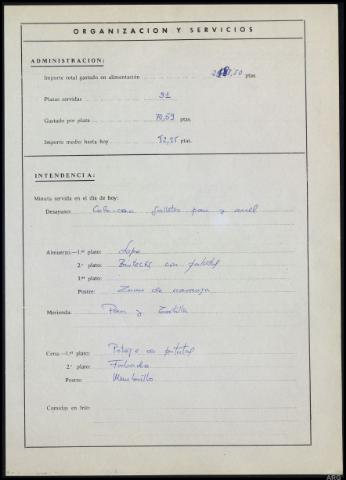 ORGANIZACION Y SERVICIOS
ADMINISTRACION:
Importe total gastado en alimentación ptas.
Platos servidos 31
Gastado por plato 70,59 ptas.
Importe medio hasta hoy 52,25 ptas.
INTENDENCIA:
Minuta servida en el día de hoy:
Desayuno: Cola-cao galletas pan y miel
Almuerzo:—1.er plato: Sopa
2.º plato: con patatas
3.er plato:
Postre: Zumo de naranja
Merienda: Pan y Tortilla
Cena.—1.er plato: Potaje de patatas
2.º plato:
Postre: Membrillo
Comidas en frío:
ARG